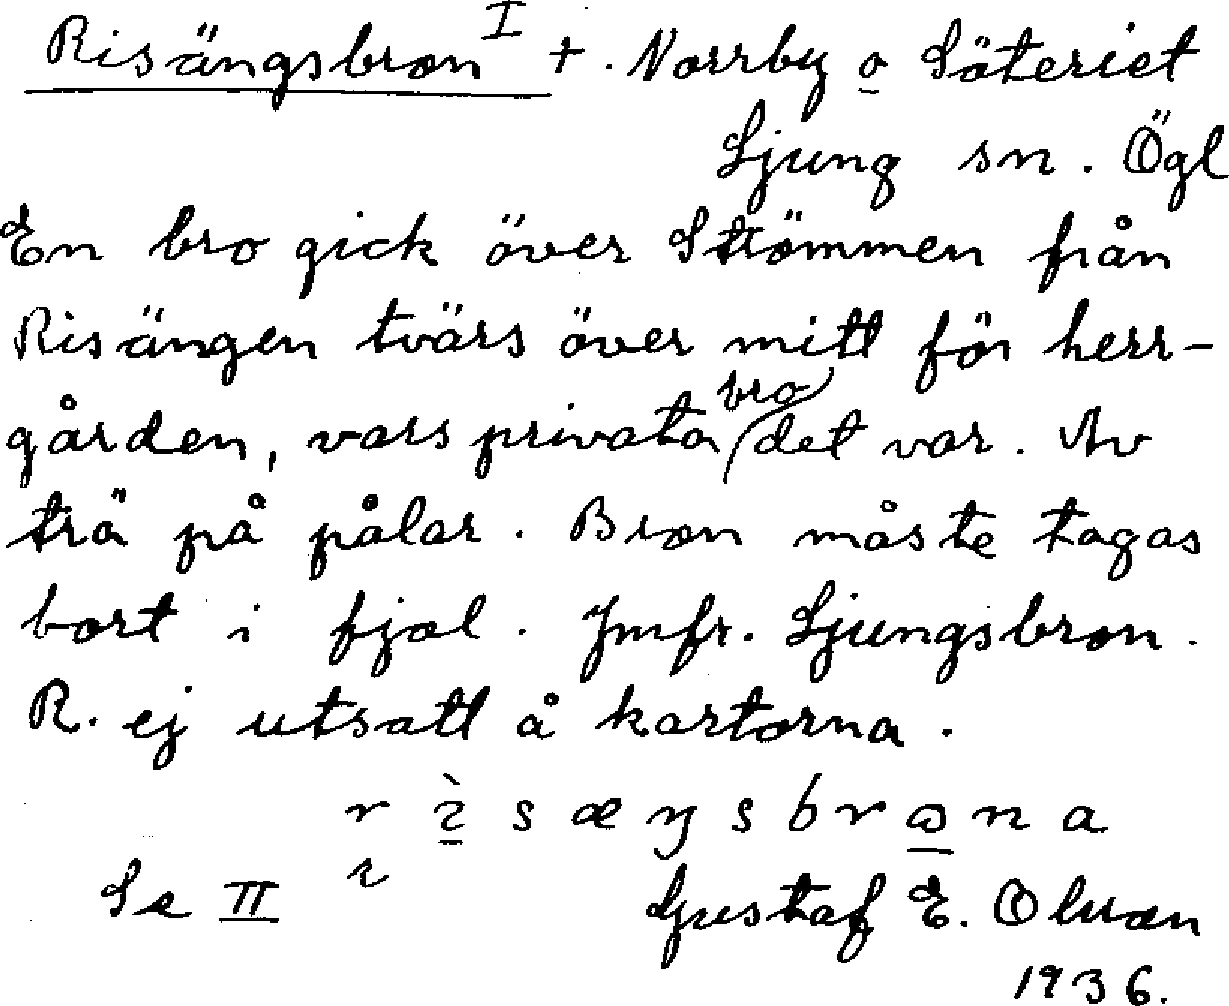 Risängsbron I +. Norrby o Säteriet
Ljung sn. Ögl
En bro gick över Strömmen från
Risängen tvärs över mitt för herr-
gården, vars privata bro det var. Av
trä på pålar. Bron måste tagas
bort i fjol. Jmfr. Ljungsbron.
R. ej utsatt å kartorna.
Se II
Gustaf E. Olson
1936.